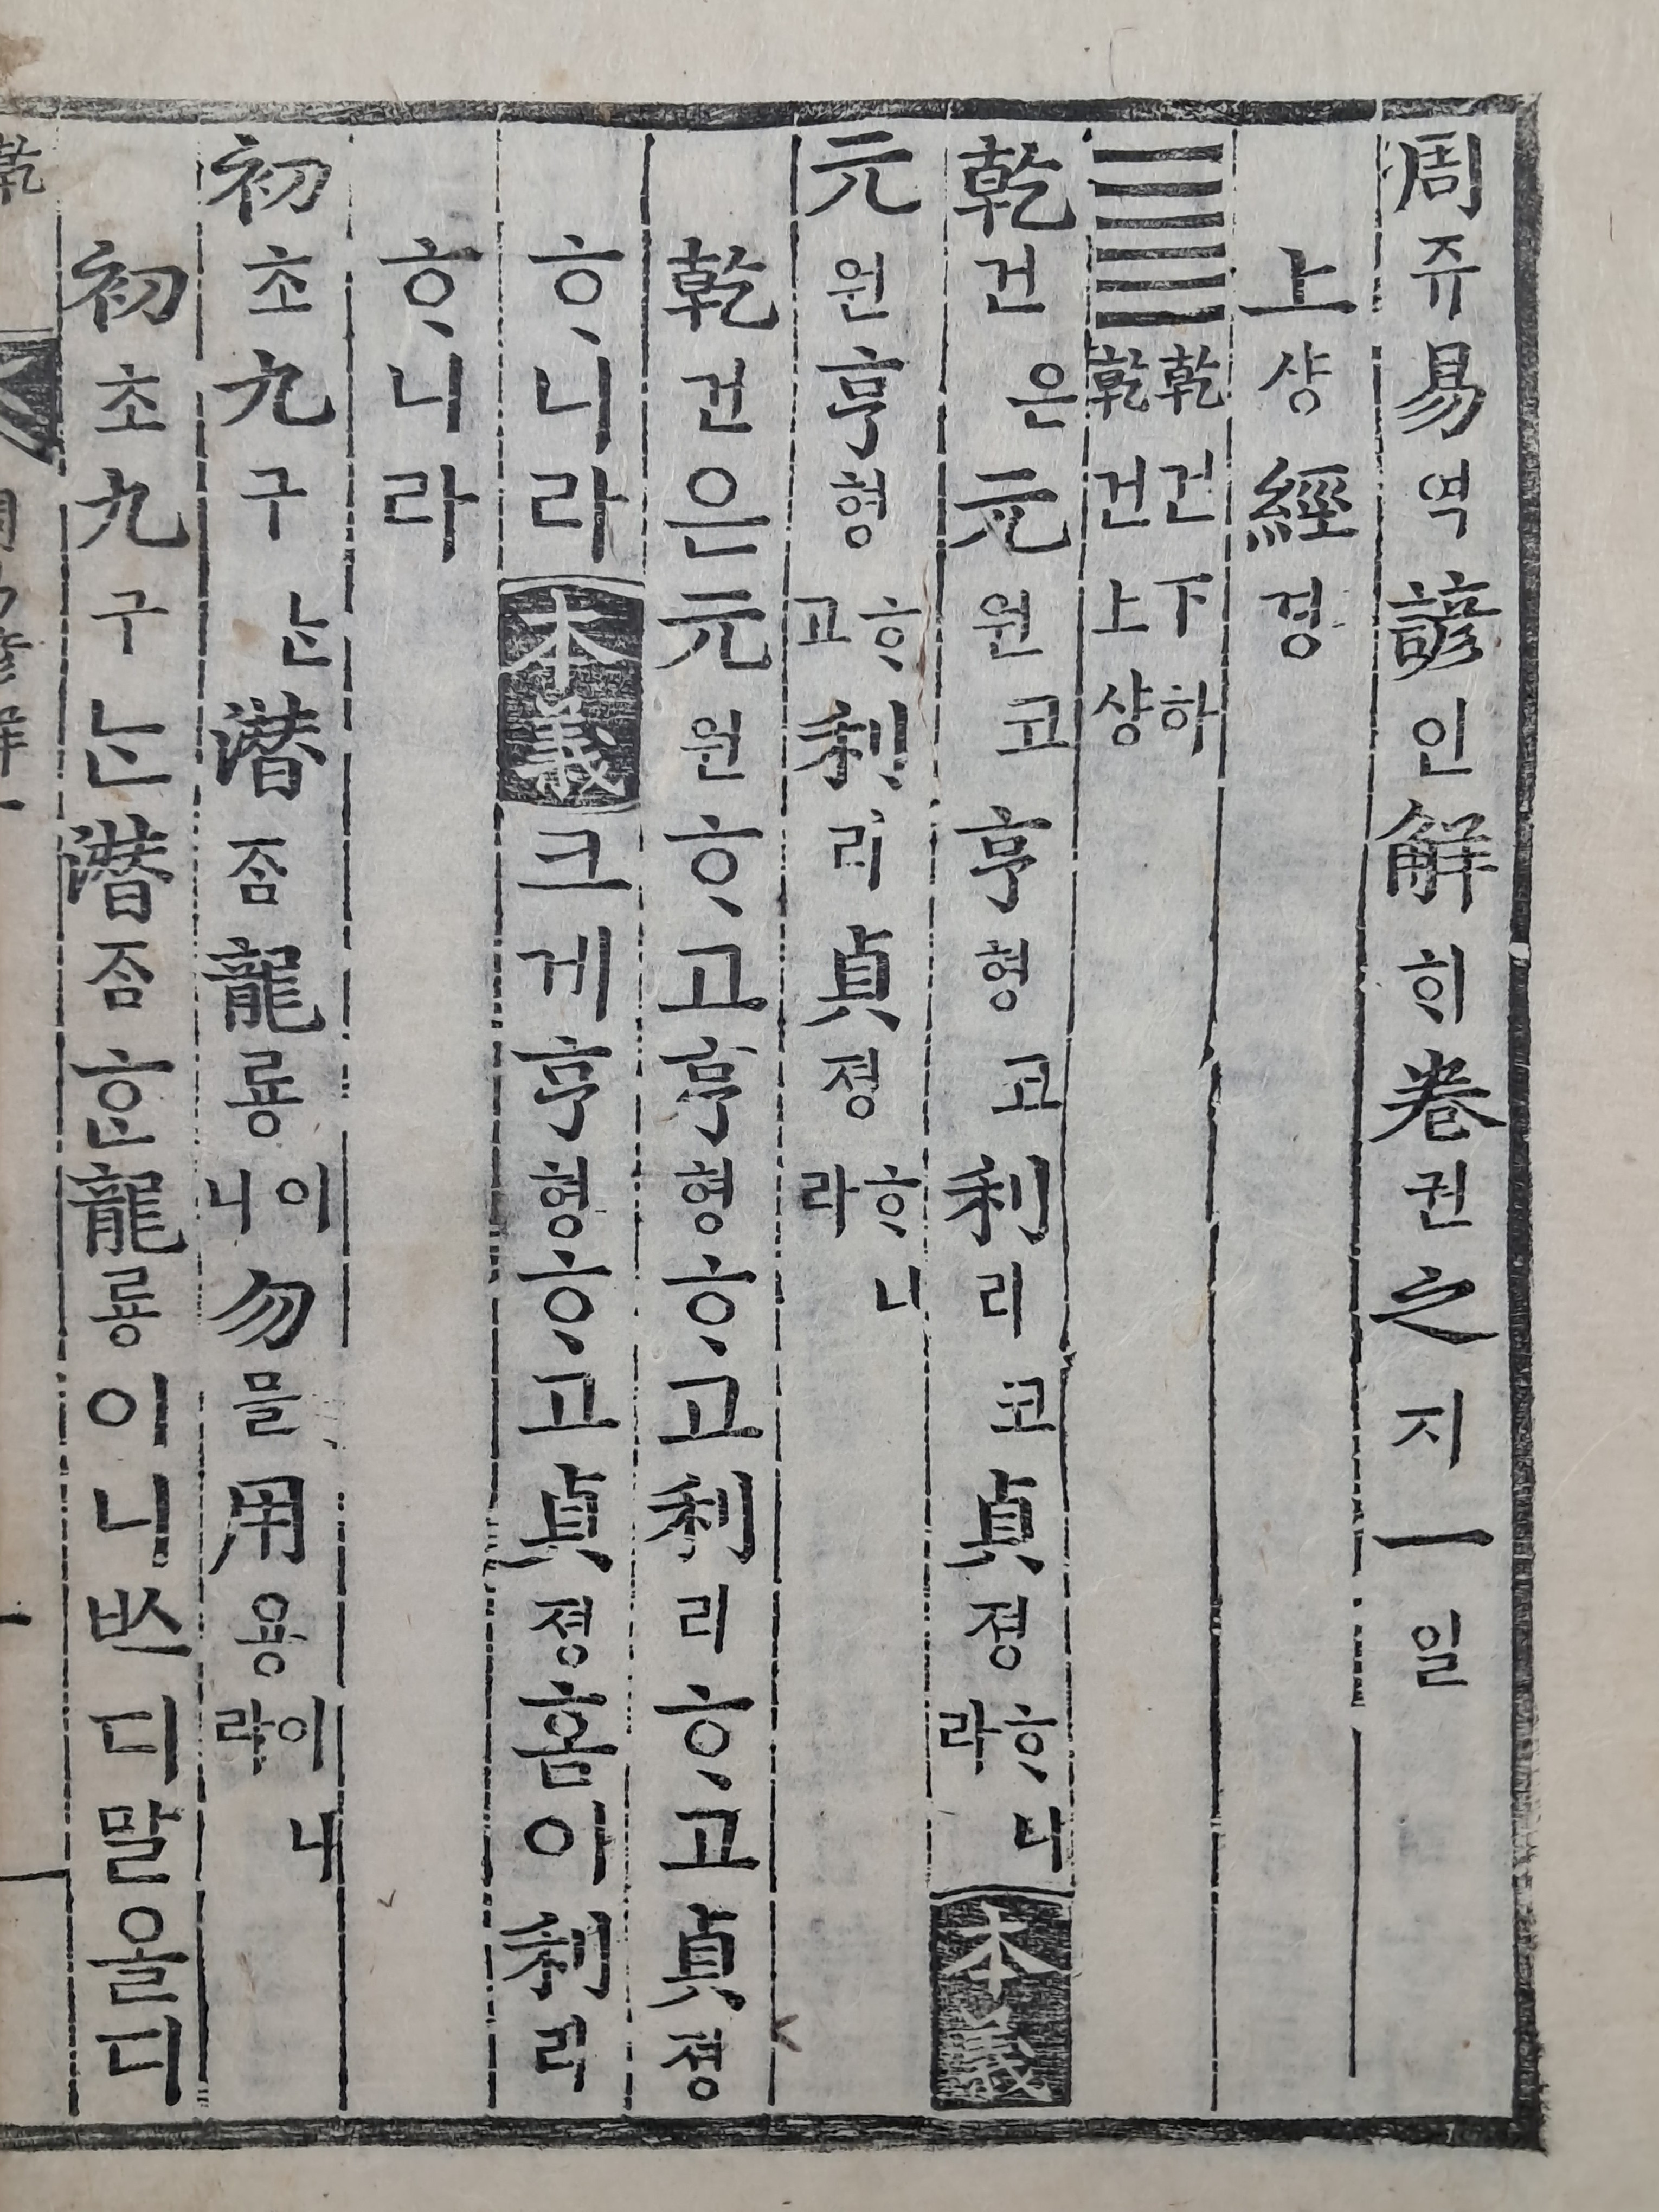 周쥬易역諺언解ᄒᆡ卷권之지一일
上샹經경
䷀乾건下하
乾건上샹
乾건은元원코亨형코利리코貞졍ᄒᆞ니라本義
元원亨형ᄒᆞ고利리貞졍ᄒᆞ니라
乾건은元원ᄒᆞ고亨형ᄒᆞ고利리ᄒᆞ고貞졍
ᄒᆞ니라本義크게亨형ᄒᆞ고貞졍홈이利리
ᄒᆞ니라
初초九구ᄂᆞᆫ潛ᄌᆞᆷ龍룡이니勿믈用용이니라
初초九구ᄂᆞᆫ潛ᄌᆞᆷᄒᆞᆫ龍룡이니ᄡᅳ디말올디